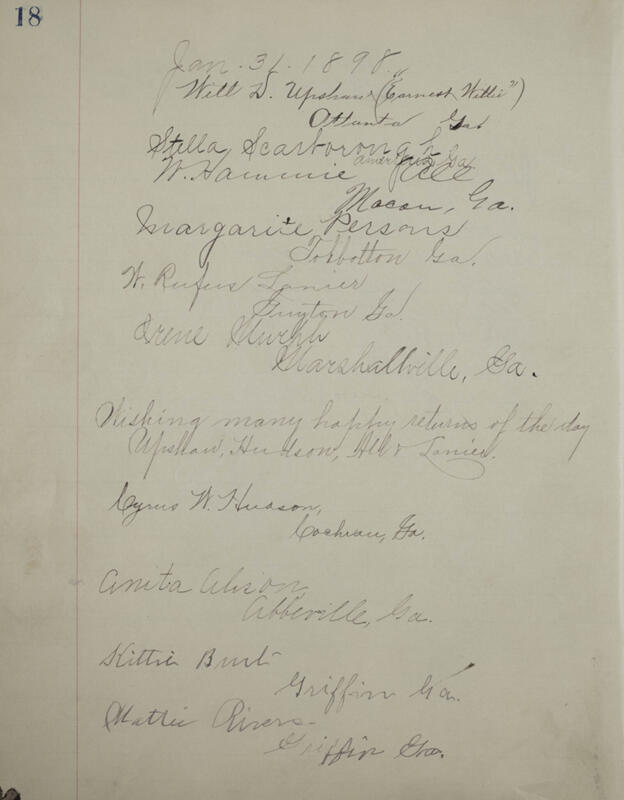 18
Jan. 31. 1898.
Will D. Upshaw ("Earnest Willie")
Atlanta Ga
Stella Scarborough
Ga
W. Hammie
Macon, Ga.
Margarite Persons
Talbotton Ga.
W. Rufus Lanier
Guyton Ga.
Irene Murph
Marshallville, Ga.
Wishing many happy returns of the day
Upshaw, Hudson, & Lanier.
Cyrus W. Hudson,
Cochran, Ga.
Anita
Abbeville, Ga.
Kittie Burt
Griffin Ga.
Mattie Rivers
Griffin Ga.